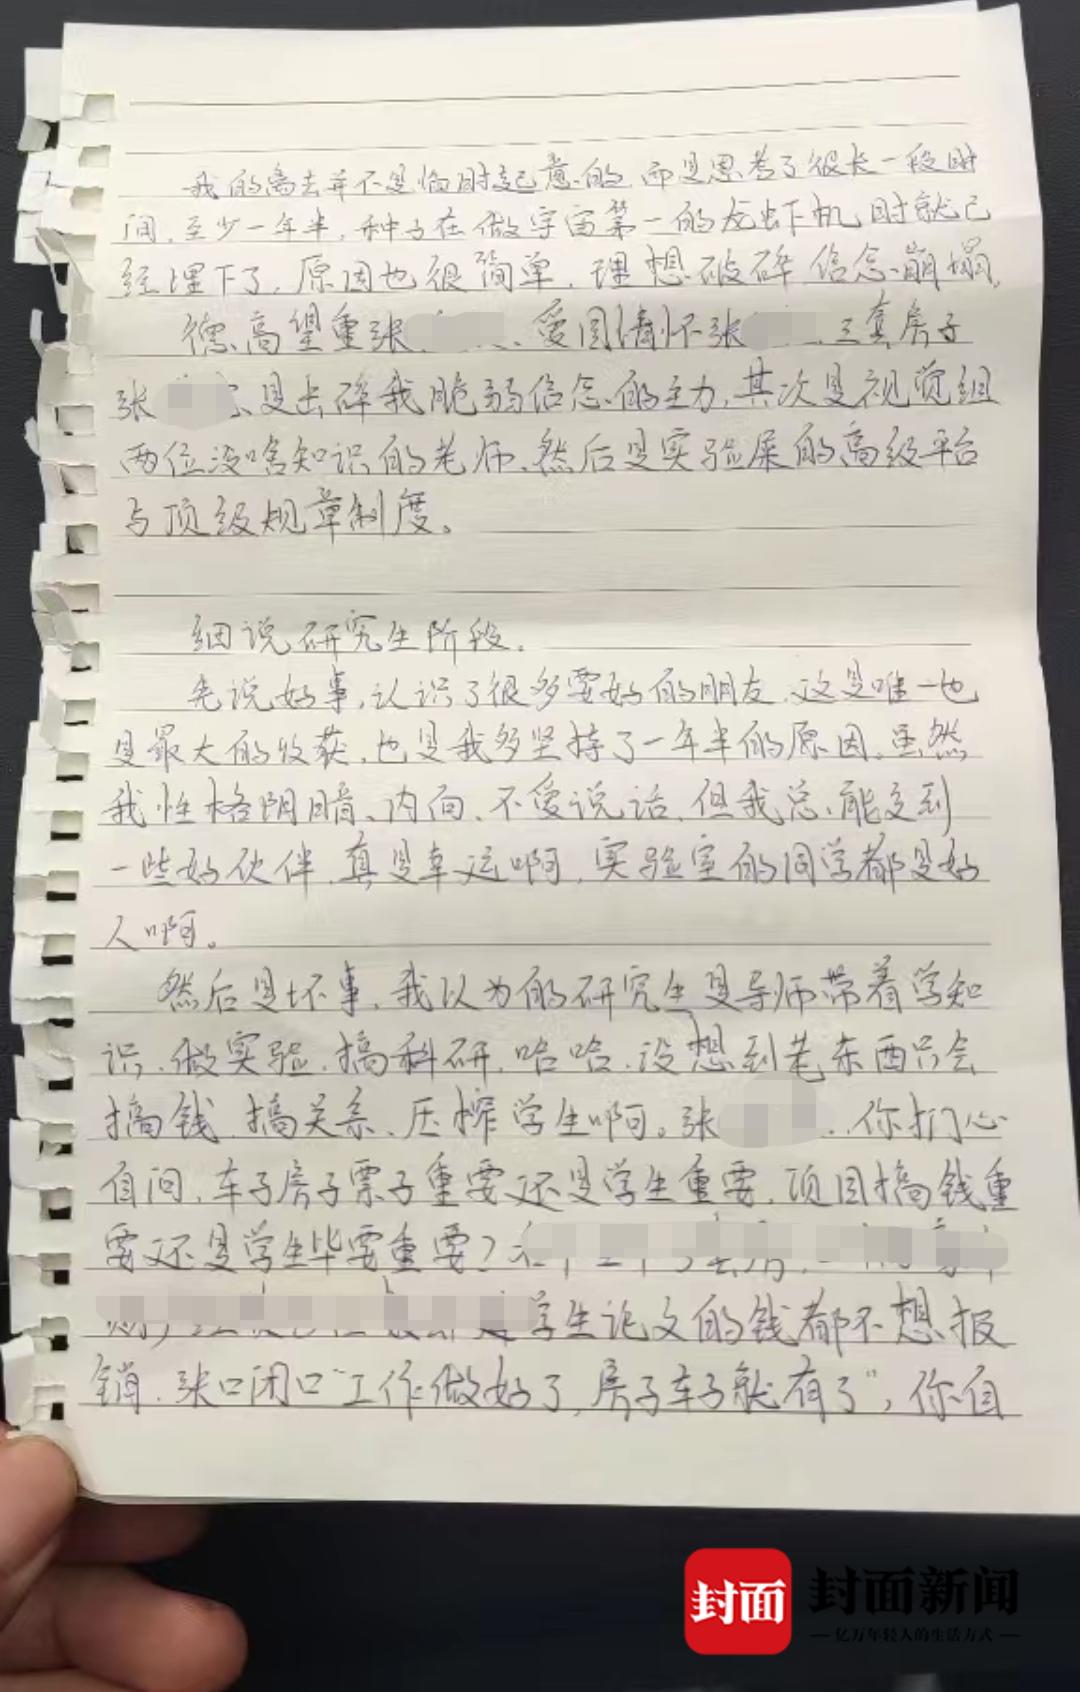 我的离去并不是临时起意的,而是思考了很长一段时
间,至少一年半,种子在做宇宙第一的龙虾机时就已
经埋下了,原因也很简单,理想破碎,信念崩塌。
德高望重张 、爱国情怀张 、三套房子
张 是击碎我脆弱信念的主力,其次是视觉组
两位没啥知识的老师、然后是实验室的高级平台
与顶级规章制度。
细说研究生阶段。
先说好事,认识了很多要好的朋友,这是唯一也
是最大的收获,也是我多坚持了一年半的原因。虽然
我性格阴暗、内向、不爱说话,但我总能交到
一些好伙伴,真是幸运啊,实验室的同学都是好
人啊。
然后是坏事,我以为的研究生是导师带着学知
识、做实验、搞科研,哈哈,没想到老东西只会
搞钱、搞关系、压榨学生啊。张 ,你扪心
自问,车子房子票子重要还是学生重要,项目搞钱重
要还是学生毕要重要?
学生论文的钱都不想报
销,张口闭口“工作做好了,房子车子就有了”,你自
封面
封面新闻
亿万年轻人的生活方式